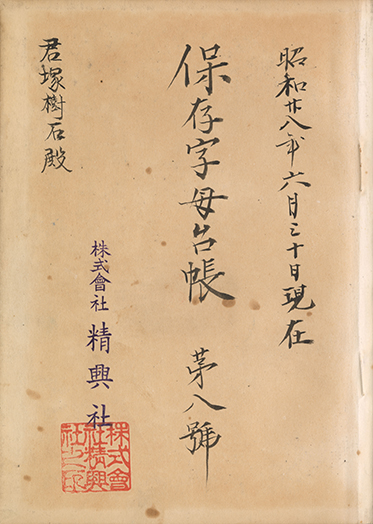 昭和廿八年六月三十日現在
保存字母台帳　第八號
君塚樹石殿
株式會社 精興社
株式會
社精興
社之印